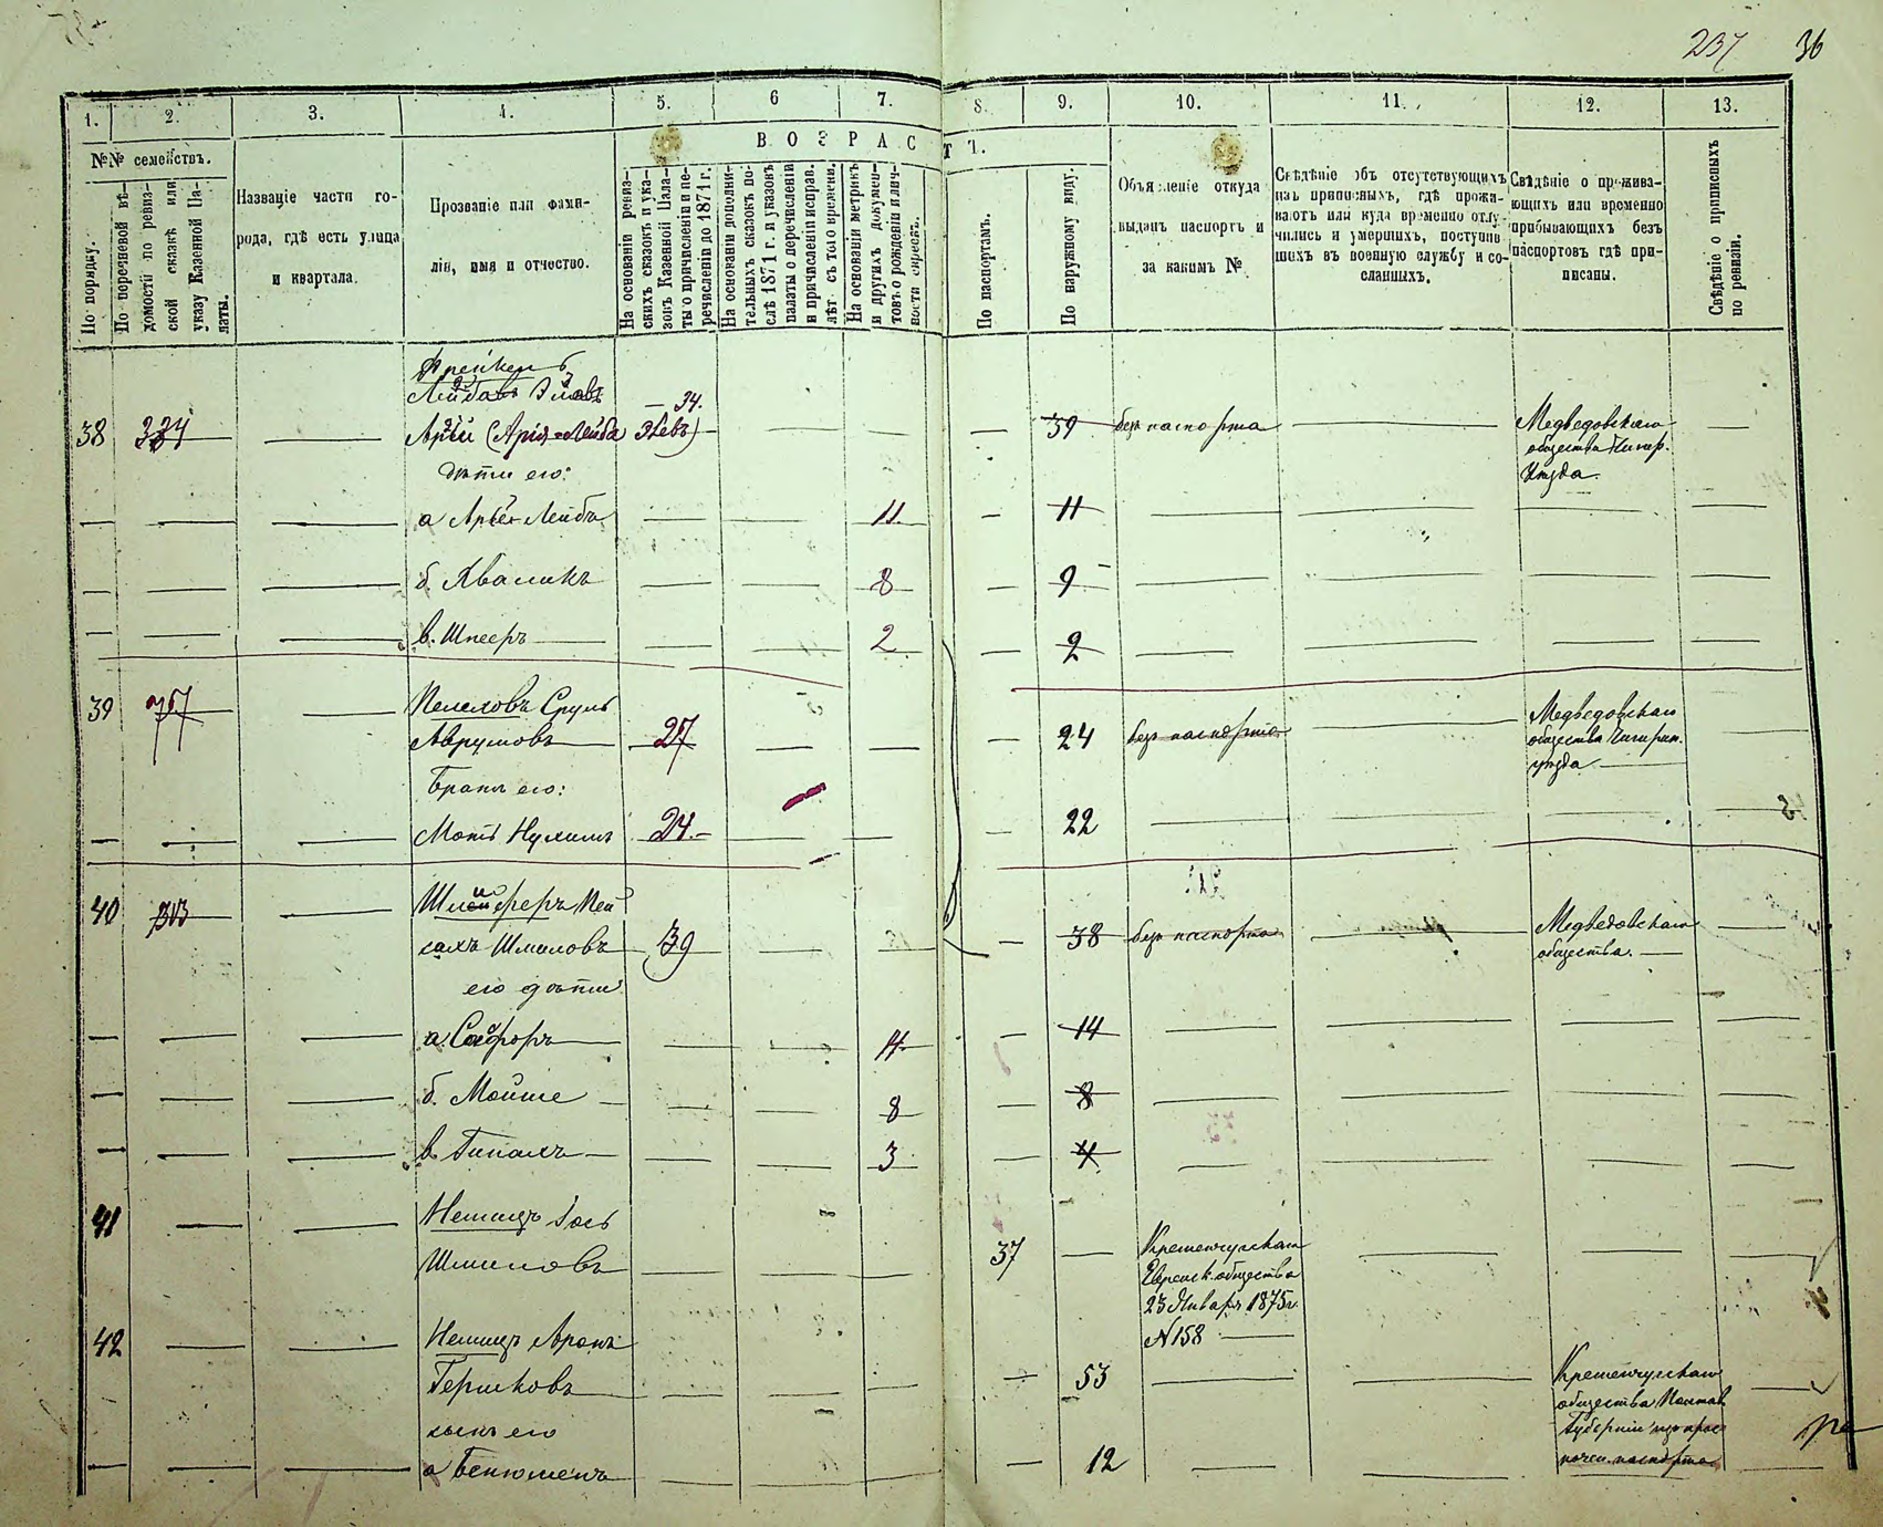 237 36
1. 2. 3. 4. 5. 6 7. 8. 9. 10. 11. 12. 13.
№№ семействъ.
По порядку.
По перечневой вѣ-
домости по ревиз-
ской сказкѣ или
указу Казенной Па-
латы.
Названіе части го-
рода, гдѣ есть улица
и квартала.
Прозваніе или фами-
лія, имя и отчество.
ВОЗРАСТЪ.
На основаніи ревиз-
скихъ сказокъ и ука-
зовъ Казенной Пала-
ты о причисленіи и пе-
речисленіи до 1871 г.
На основаніи дополни-
тельныхъ сказокъ по-
слѣ 1871 г. и указовъ
палаты о перечисленіи
и причисленіи исправ.
лѣт съ того времени.
На основаніи метрикъ
и другихъ докумен-
товъ о рожденіи и лич-
ности
По паспортамъ.
По наружному виду.
Объявленіе откуда
выданъ паспортъ и
за какимъ №
Свѣдѣніе объ отсутствующихъ
изъ приписныхъ, гдѣ прожи-
ваютъ или куда временно отлу-
чились и умершихъ, поступив-
шихъ въ военную службу и со-
сланныхъ.
Свѣдѣніе о прожива-
ющихъ или временно
прибывающихъ безъ
паспортовъ гдѣ при-
писаны.
Свѣдѣніе о приписныхъ
по ревизіи.
34.
38 334 (Арія-Лейба Зѣевъ) 39 безъ паспорта Медведовскаго
общества Чигир.
уѣзда.
дѣти его:
а Арье-Лейбъ 11. 11
б. Хваликъ 8 9
в. Шпееръ 2 2
39 757 Пелеховъ Сруль Медведовскаго
Аврумовъ 27 24 безъ паспорта общества Чигирин.
уѣзда
Братъ его:
Нухимъ 24. 22
40 313 Пей
сахъ Шмулевъ 39 38 безъ паспорта Медведовскаго
общества.
его дѣти
а. 14 14
б. Мойше 8 8
в. 3 4
41 Немецъ
Шмилевъ 37 Кременчугскаго
Еврейск. общества
23 Января 1875 г.
N 158
42 Немецъ Аронъ
Гершковъ 53 Кременчугскаго
общества Полтав.
сынъ его губерніи
а Бенюменъ 12 паспорта